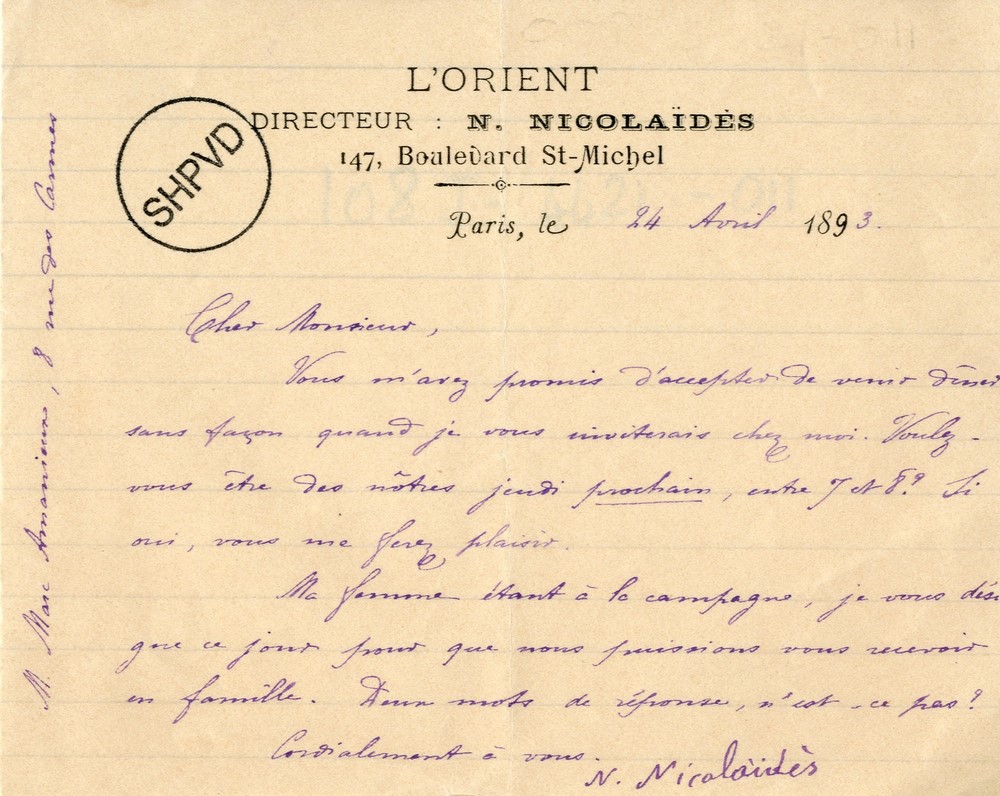 L'ORIENT
DIRECTEUR : N. NICOLAÏDÈS
147, Boulevard St-Michel
SHPVD
Paris, le 24 Avril 1893.
Cher Monsieur,
Vous m'avez promis d'accepter de venir dîner
sans façon quand je vous inviterais chez moi. Voulez-
vous être des nôtres jeudi prochain, entre 7 et 8? Si
oui, vous me ferez plaisir.
Ma femme étant à la campagne, je vous dési
gne ce jour pour que nous puissions vous recevoir
en famille. Deux mots de réponse, n'est-ce pas?
Cordialement à vous.
N. Nicolaïdès
M. Marc Amanieux, 8 rue des Carmes